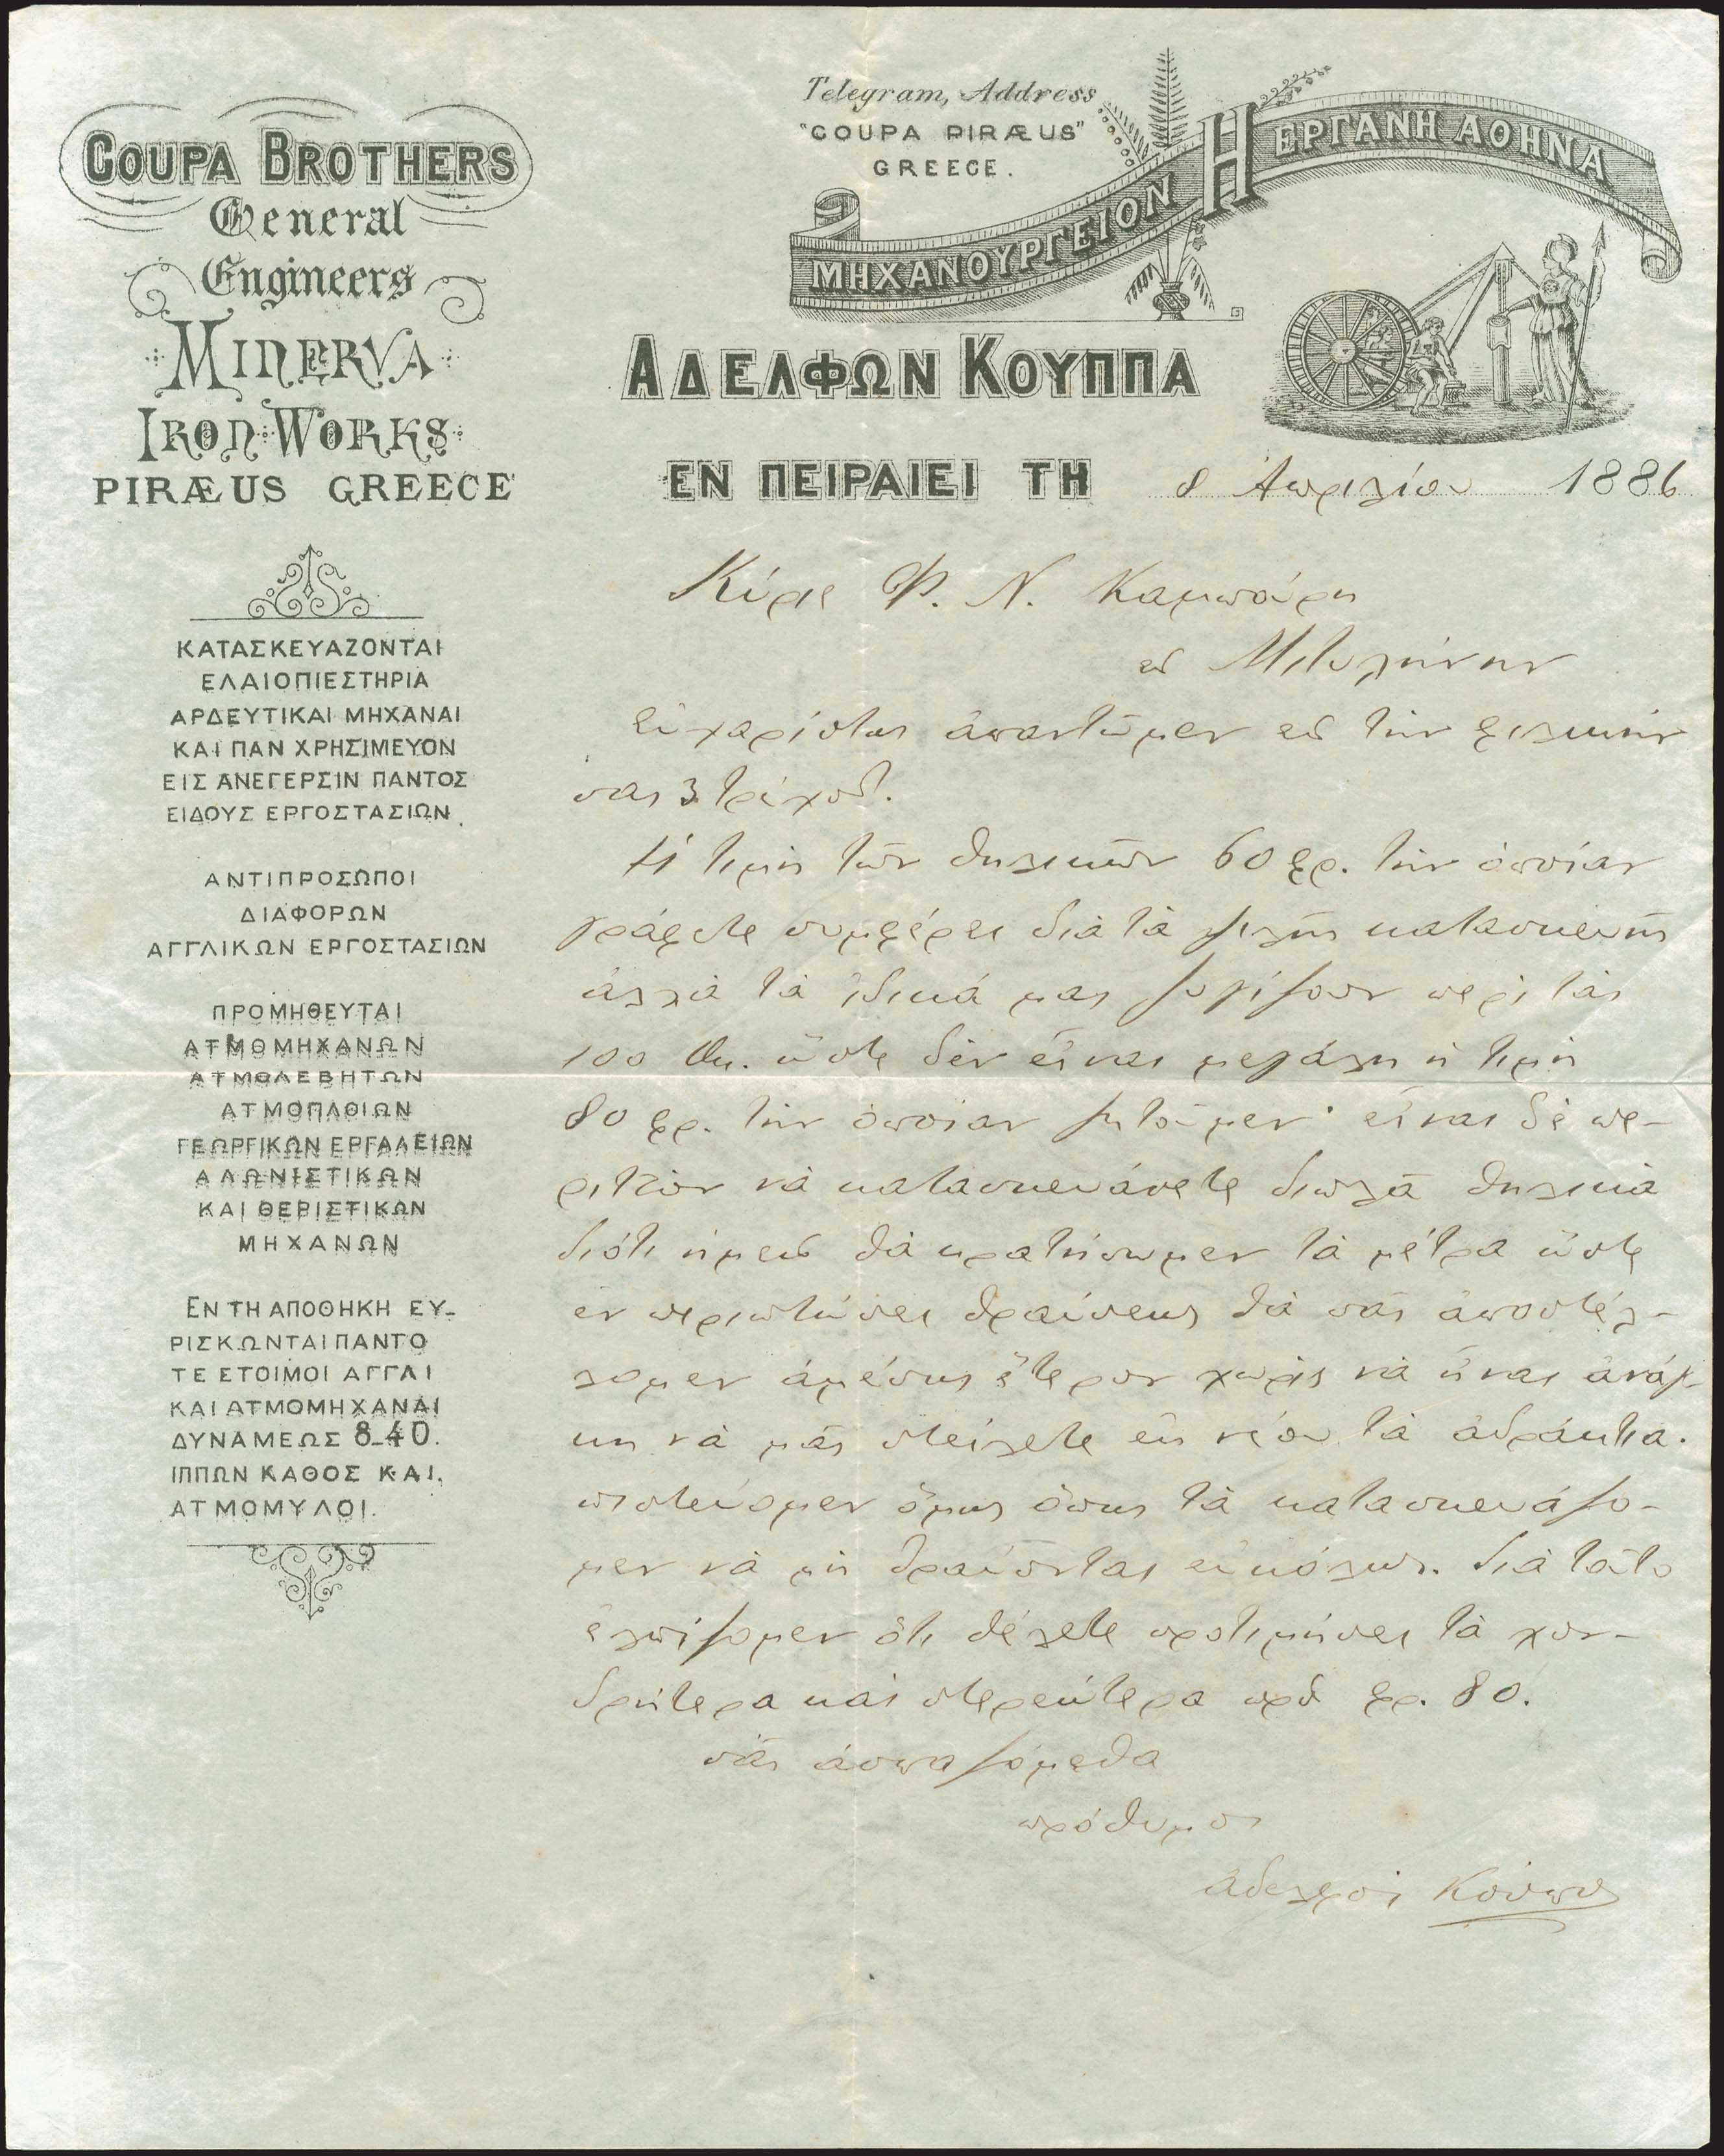 COUPA BROTHERS
General
Engineers
MINERVA
IRON WORKS
PIRÆUS GREECE
ΚΑΤΑΣΚΕΥΑΖΟΝΤΑΙ
ΕΛΑΙΟΠΙΕΣΤΗΡΙΑ
ΑΡΔΕΥΤΙΚΑΙ ΜΗΧΑΝΑΙ
ΚΑΙ ΠΑΝ ΧΡΗΣΙΜΕΥΟΝ
ΕΙΣ ΑΝΕΓΕΡΣΙΝ ΠΑΝΤΟΣ
ΕΙΔΟΥΣ ΕΡΓΟΣΤΑΣΙΩΝ.
ΑΝΤΙΠΡΟΣΩΠΟΙ
ΔΙΑΦΟΡΩΝ
ΑΓΓΛΙΚΩΝ ΕΡΓΟΣΤΑΣΙΩΝ
ΠΡΟΜΗΘΕΥΤΑΙ
ΑΤΜΟΜΗΧΑΝΩΝ
ΑΤΜΟΛΕΒΗΤΩΝ
ΑΤΜΟΠΛΟΙΩΝ
ΓΕΩΡΓΙΚΩΝ ΕΡΓΑΛΕΙΩΝ
ΑΛΩΝΙΣΤΙΚΩΝ
ΚΑΙ ΘΕΡΙΣΤΙΚΩΝ
ΜΗΧΑΝΩΝ
ΕΝ ΤΗ ΑΠΟΘΗΚΗ ΕΥ-
ΡΙΣΚΩΝΤΑΙ ΠΑΝΤΟ
ΤΕ ΕΤΟΙΜΟΙ ΑΓΓΛΙ
ΚΑΙ ΑΤΜΟΜΗΧΑΝΑΙ
ΔΥΝΑΜΕΩΣ 8-40.
ΙΠΠΩΝ ΚΑΘΟΣ ΚΑΙ.
ΑΤΜΟΜΥΛΟΙ.
Telegram, Address
"COUPA PIRÆUS"
GREECE.
ΜΗΧΑΝΟΥΡΓΕΙΟΝ Η ΕΡΓΑΝΗ ΑΘΗΝΑ
ΑΔΕΛΦΩΝ ΚΟΥΠΠΑ
ΕΝ ΠΕΙΡΑΙΕΙ ΤΗ 8 Ἀπριλίου 1886
Κύριε Φ. Ν. Καμπούρη
εἰς Μιτυλήνην
Εὐχαρίστως ἀπαντῶμεν εἰς τὴν φιλικήν
σας 3 τρέχοντ.
Ἡ τιμὴ τῶν θηλυκῶν 60 φρ. τὴν ὁποίαν
γράφετε συμφέρει διὰ τὰ ψιλῆς κατασκευῆς
ἀλλὰ τὰ ἰδικά μας ζυγίζουν περὶ τὰς
100 ὀκ. ὥστε δὲν εἶναι μεγάλη ἡ τιμὴ
80 φρ. τὴν ὁποίαν ζητοῦμεν· εἶναι δὲ πε-
ριττὸν νὰ κατασκευάσετε διπλᾶ θηλυκὰ
διότι ἡμεῖς θὰ κρατήσωμεν τὰ μέτρα ὥστε
ἐν περιπτώσει θραύσεως θὰ σᾶς ἀποστέλ-
λομεν ἀμέσως ἕτερον χωρὶς νὰ ἦναι ἀνάγ-
κη νὰ μᾶς στείλετε ἐκ νέου τὰ ἀδράκτια.
πιστεύομεν ὅμως ὅπως τὰ κατασκευάζο-
μεν νὰ μὴ θραύονται εὐκόλως. διὰ τοῦτο
ἐλπίζομεν ὅτι θέλετε προτιμήσει τὰ χον-
δρότερα καὶ στερεώτερα πρὸς φρ. 80.
σᾶς ἀσπαζόμεθα
πρόθυμοι
ἀδελφοὶ Κούππα